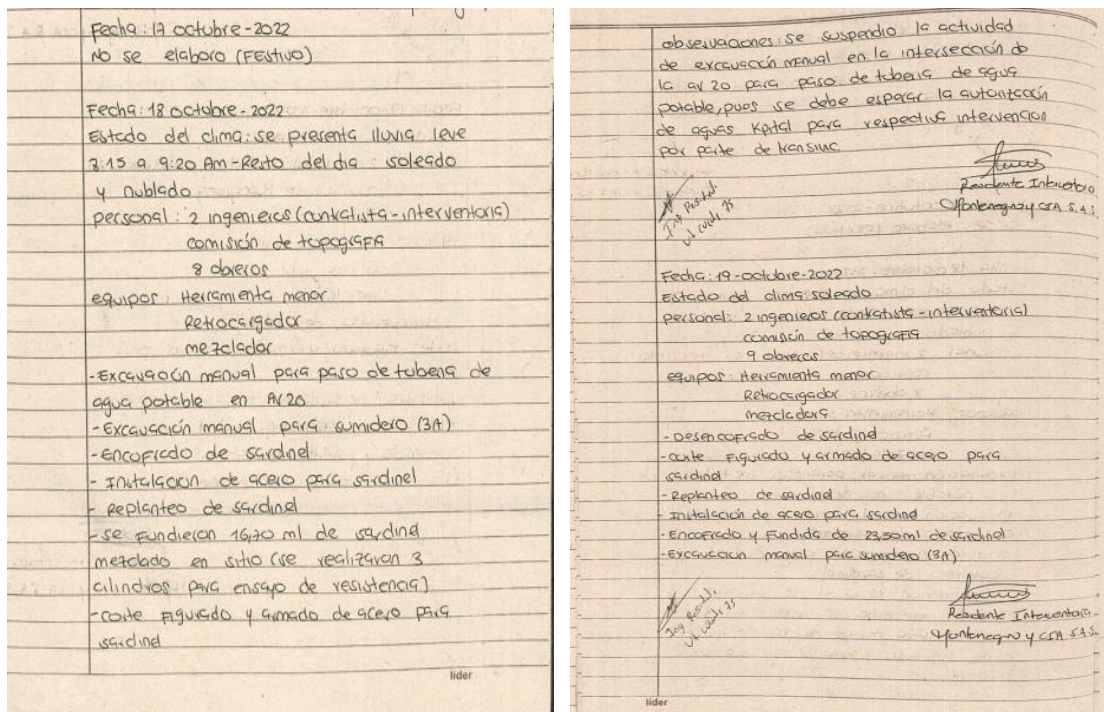 Fecha: 17 octubre-2022
No se elaboro (FEstivo)
Fecha: 18 octubre-2022
Estado del clima: se presenta lluvia leve
8:15 a 9:20 Am-Resto del dia soleado
y nublado
personal: 2 ingenieros (contratista-interventoria)
comisión de topografia
8 obreros
equipos: Herramienta menor
Retrocargador
mezclador
-Excavación manual para paso de tuberia de
agua potable en Av 20
-Excavación manual para sumidero (3A)
-Encofrado de sardinel
- Instalacion de acero para sardinel
- Replanteo de sardinel
-se Fundieron 16,70 ml de sardinel
mezclado en sitio (se realizaron 3
cilindros para ensayo de resistencia)
-corte Figurado y armado de acero para
sardinel
lider
observaciones: se suspendio la actividad
de excavación manual en la intersección de
la av 20 para paso de tuberia de agua
potable, pues se debe esperar la autorización
de aguas Kpital para respectiva intervención
por parte de
Residente Interventoria
Montenegro y CIA S.A.S.
Ing Resident
Fecha: 19-octubre-2022
Estado del clima: soleado
personal: 2 ingenieros (contratista-interventoria)
comisión de topografia
9 obreros
equipos: Herramienta menor
Retrocargador
mezcladora
-Desencofrado de sardinel
-corte Figurado y armado de acero para
sardinel
-Replanteo de sardinel
-Instalación de acero para sardinel
-Encofrado y Fundida de 23,50 ml de sardinel
-Excavacion manual para sumidero (3A)
Residente Interventoria
Montenegro y CIA S.A.S.
Ing Resident
lider